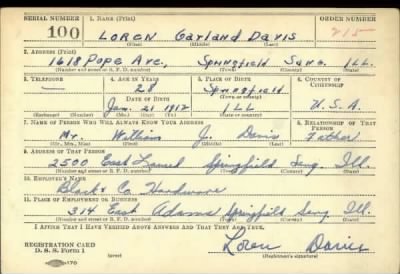 SERIAL NUMBER 1. NAME (Print) ORDER NUMBER
100 LOREN Garland DAVIS 215
(First) (Middle) (Last)
2. ADDRESS (Print)
1618 Pope Ave, Springfield Sang. ILL.
(Number and street or R. F. D. number) (Town) (County) (State)
3. TELEPHONE 4. AGE IN YEARS 5. PLACE OF BIRTH 6. COUNTRY OF CITIZENSHIP
— 28 Springfield
(Town or county)
DATE OF BIRTH
Jan. 21 1912 ILL U.S.A.
(Exchange) (Number) (Mo.) (Day) (Yr.) (State or country)
7. NAME OF PERSON WHO WILL ALWAYS KNOW YOUR ADDRESS 8. RELATIONSHIP OF THAT PERSON
Mr. William J. Davis Father
(Mr., Mrs., Miss) (First) (Middle) (Last)
9. ADDRESS OF THAT PERSON
2500 East Laurel Springfield Sang. Ill.
(Number and street or R. F. D. number) (Town) (County) (State)
10. EMPLOYER'S NAME
Black & Co Hardware
11. PLACE OF EMPLOYMENT OR BUSINESS
314 East Adams Springfield Sang Ill.
(Number and street or R. F. D. number) (Town) (County) (State)
I AFFIRM THAT I HAVE VERIFIED ABOVE ANSWERS AND THAT THEY ARE TRUE.
REGISTRATION CARD
D. S. S. Form 1
(over) Loren Davis
(Registrant's signature)